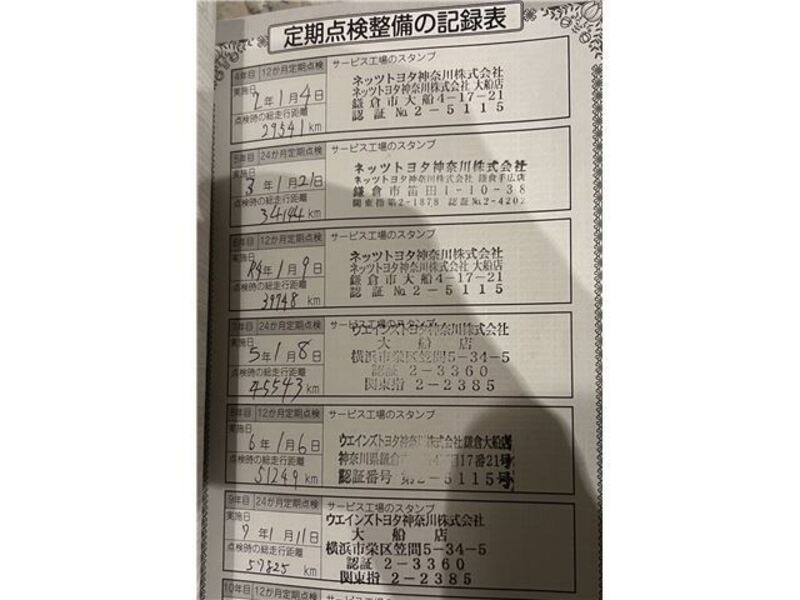 定期点検整備の記録表
4年目 12か月定期点検 サービス工場のスタンプ
実施日
2年1月4日
点検時の総走行距離
29541 km
ネッツトヨタ神奈川株式会社
ネッツトヨタ神奈川株式会社 大船店
鎌倉市大船4-17-21
認証 №2-5115
5年目 24か月定期点検 サービス工場のスタンプ
実施日
3年1月21日
点検時の総走行距離
34144 km
ネッツトヨタ神奈川株式会社
ネッツトヨタ神奈川株式会社 鎌倉手広店
鎌倉市笛田1-10-38
関東指第2-1878 認証№2-4202
6年目 12か月定期点検 サービス工場のスタンプ
実施日
R4年1月9日
点検時の総走行距離
39748 km
ネッツトヨタ神奈川株式会社
ネッツトヨタ神奈川株式会社 大船店
鎌倉市大船4-17-21
認証 №2-5115
7年目 24か月定期点検 サービス工場のスタンプ
実施日
5年1月8日
点検時の総走行距離
45543 km
ウエインズトヨタ神奈川株式会社
大船店
横浜市栄区笠間5-34-5
認証 2-3360
関東指 2-2385
8年目 12か月定期点検 サービス工場のスタンプ
実施日
6年1月6日
点検時の総走行距離
51249 km
ウエインズトヨタ神奈川株式会社鎌倉大船店
神奈川県鎌倉市 4丁目17番21号
認証番号 第2-5115号
9年目 24か月定期点検 サービス工場のスタンプ
実施日
7年1月11日
点検時の総走行距離
57825 km
ウエインズトヨタ神奈川株式会社
大船店
横浜市栄区笠間5-34-5
認証 2-3360
関東指 2-2385
10年目 12か月定期点検